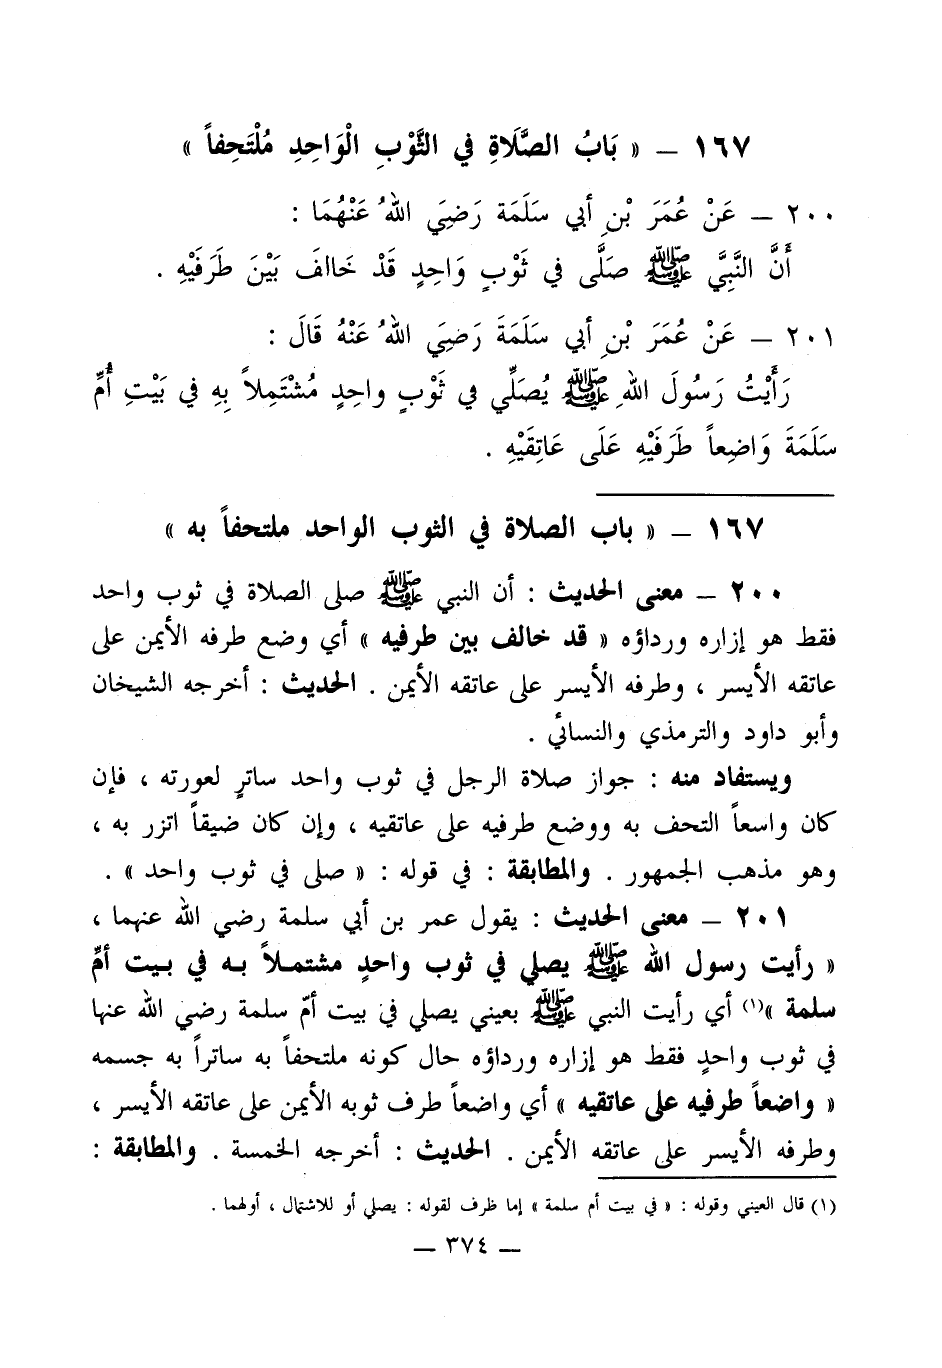 ١٦٧ – « بَابُ الصَّلَاةِ في الثَّوْبِ الْوَاحِدِ مُلْتَحِفاً »
٢٠٠ – عَنْ عُمَرَ بْنِ أبي سَلَمَة رَضِيَ اللهُ عَنْهُمَا :
أَنَّ النَّبِيَّ ﷺ صَلَّى في ثَوْبٍ وَاحِدٍ قَدْ خَاالفَ بَيْنَ طَرَفَيْهِ .
٢٠١ – عَنْ عُمَرَ بْنِ أبي سَلَمَةَ رَضِيَ اللهُ عَنْهُ قَالَ :
رَأَيْتُ رَسُولَ اللهِ ﷺ يُصَلِّي في ثَوْبٍ واحِدٍ مُشْتَمِلاً بِهِ في بَيْتِ أُمِّ
سَلَمَةَ وَاضِعاً طَرَفَيْهِ عَلَى عَاتِقَيْهِ .
١٦٧ – « باب الصلاة في الثوب الواحد ملتحفاً به »
٢٠٠ – معنى الحديث : أن النبي ﷺ صلى الصلاة في ثوب واحد
فقط هو إزاره ورداؤه « قد خالف بين طرفيه » أي وضع طرفه الأيمن على
عاتقه الأيسر ، وطرفه الأيسر على عاتقه الأيمن . الحديث : أخرجه الشيخان
وأبو داود والترمذي والنسائي .
ويستفاد منه : جواز صلاة الرجل في ثوب واحد ساترٍ لعورته ، فإن
كان واسعاً التحف به ووضع طرفيه على عاتقيه ، وإن كان ضيقاً اتزر به ،
وهو مذهب الجمهور . والمطابقة : في قوله : « صلى في ثوب واحد » .
٢٠١ – معنى الحديث : يقول عمر بن أبي سلمة رضي الله عنهما ،
« رأيت رسول الله ﷺ يصلي في ثوب واحدٍ مشتملاً به في بيت أمِّ
سلمة »(١) أي رأيت النبي ﷺ بعيني يصلي في بيت أمّ سلمة رضي الله عنها
في ثوب واحدٍ فقط هو إزاره ورداؤه حال كونه ملتحفاً به ساتراً به جسمه
« واضعاً طرفيه على عاتقيه » أي واضعاً طرف ثوبه الأيمن على عاتقه الأيسر ،
وطرفه الأيسر على عاتقه الأيمن . الحديث : أخرجه الخمسة . والمطابقة :
(١) قال العيني وقوله : « في بيت أم سلمة » إما ظرف لقوله : يصلي أو للاشتمال ، أولهما .
– ٣٧٤ –